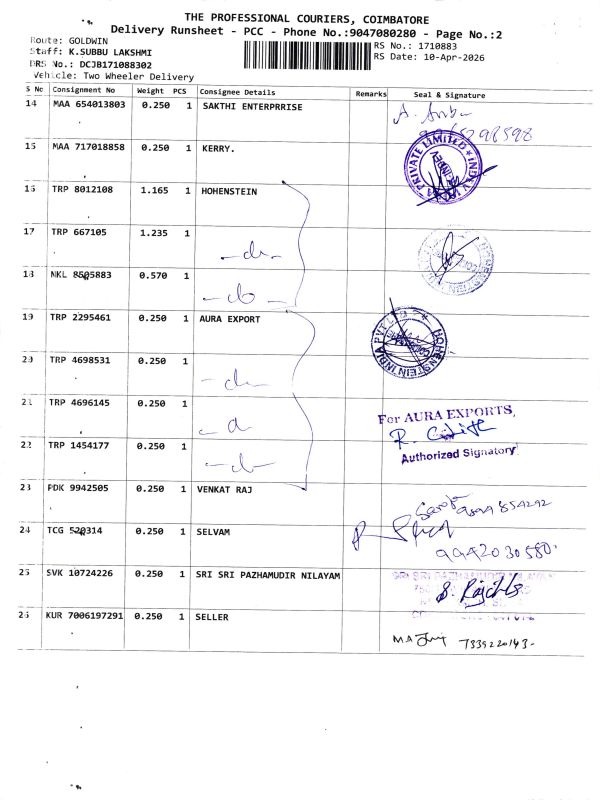 THE PROFESSIONAL COURIERS, COIMBATORE
Delivery Runsheet - PCC - Phone No.:9047080280 - Page No.:2
Route: GOLDWIN
RS No.: 1710883
Staff: K.SUBBU LAKSHMI
RS Date: 10-Apr-2026
DRS No.: DCJB171088302
Vehicle: Two Wheeler Delivery
S No Consignment No Weight PCS Consignee Details Remarks Seal & Signature
14 MAA 654013803 0.250 1 SAKTHI ENTERPRRISE
15 MAA 717018858 0.250 1 KERRY.
PRIVATE LIMITED
16 TRP 8012108 1.165 1 HOHENSTEIN
17 TRP 667105 1.235 1
-do-
18 NKL 8505883 0.570 1
-do-
19 TRP 2295461 0.250 1 AURA EXPORT
HOHENSTEIN INDIA PVT LTD
20 TRP 4698531 0.250 1
-do-
21 TRP 4696145 0.250 1
-do-
For AURA EXPORTS,
22 TRP 1454177 0.250 1
-do-
Authorized Signatory
23 PDK 9942505 0.250 1 VENKAT RAJ
24 TCG 520314 0.250 1 SELVAM
9942030580.
25 SVK 10724226 0.250 1 SRI SRI PAZHAMUDIR NILAYAM
SRI SRI PAZHAMUDIR NILAYAM
26 KUR 7006197291 0.250 1 SELLER
7339220143-